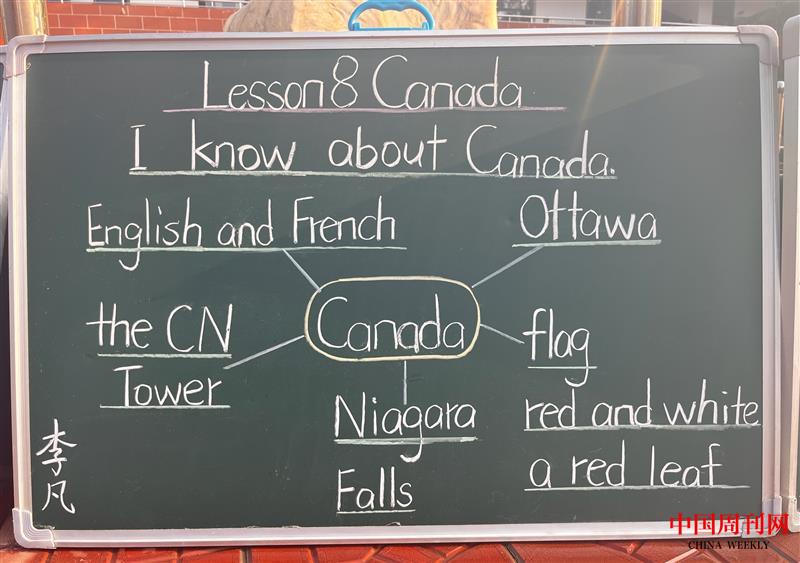 Lesson 8 Canada
I know about Canada.
English and French
Ottawa
Canada
the CN
Tower
flag
red and white
a red leaf
Niagara
Falls
李凡
中国周刊网
CHINA WEEKLY